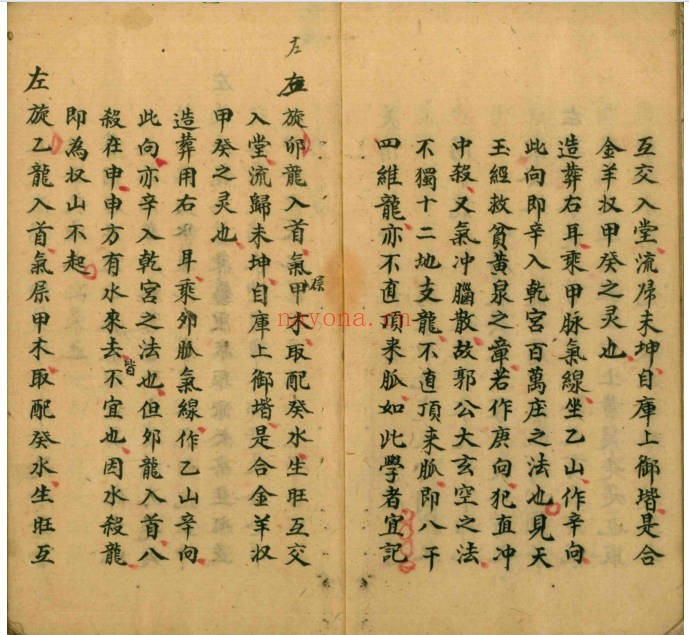 互交入堂流归未坤自庫上御堦是合
金羊収甲癸之灵也
造葬右耳乘甲脉氣線坐乙山作辛向
此向即辛入乾宮百萬庄之法也見天
玉經救貧黃泉之章若作庚向犯直冲
中殺又氣冲腦散故郭公大玄空之法
不獨十二地支龍不直頂来脈即八干
四維龍亦不直頂来脈如此學者宜記
左旋卯龍入首氣屬甲木取配癸水生旺互交
入堂流歸未坤自庫上御堦是合金羊収
甲癸之灵也
造葬用右耳乘卯脈氣線作乙山辛向
此向亦辛入乾宮之法也但卯龍入首八
殺在申申方有水來去皆不宜也因水殺龍
即為収山不起
左旋乙龍入首氣屬甲木取配癸水生旺互
nayona.cn